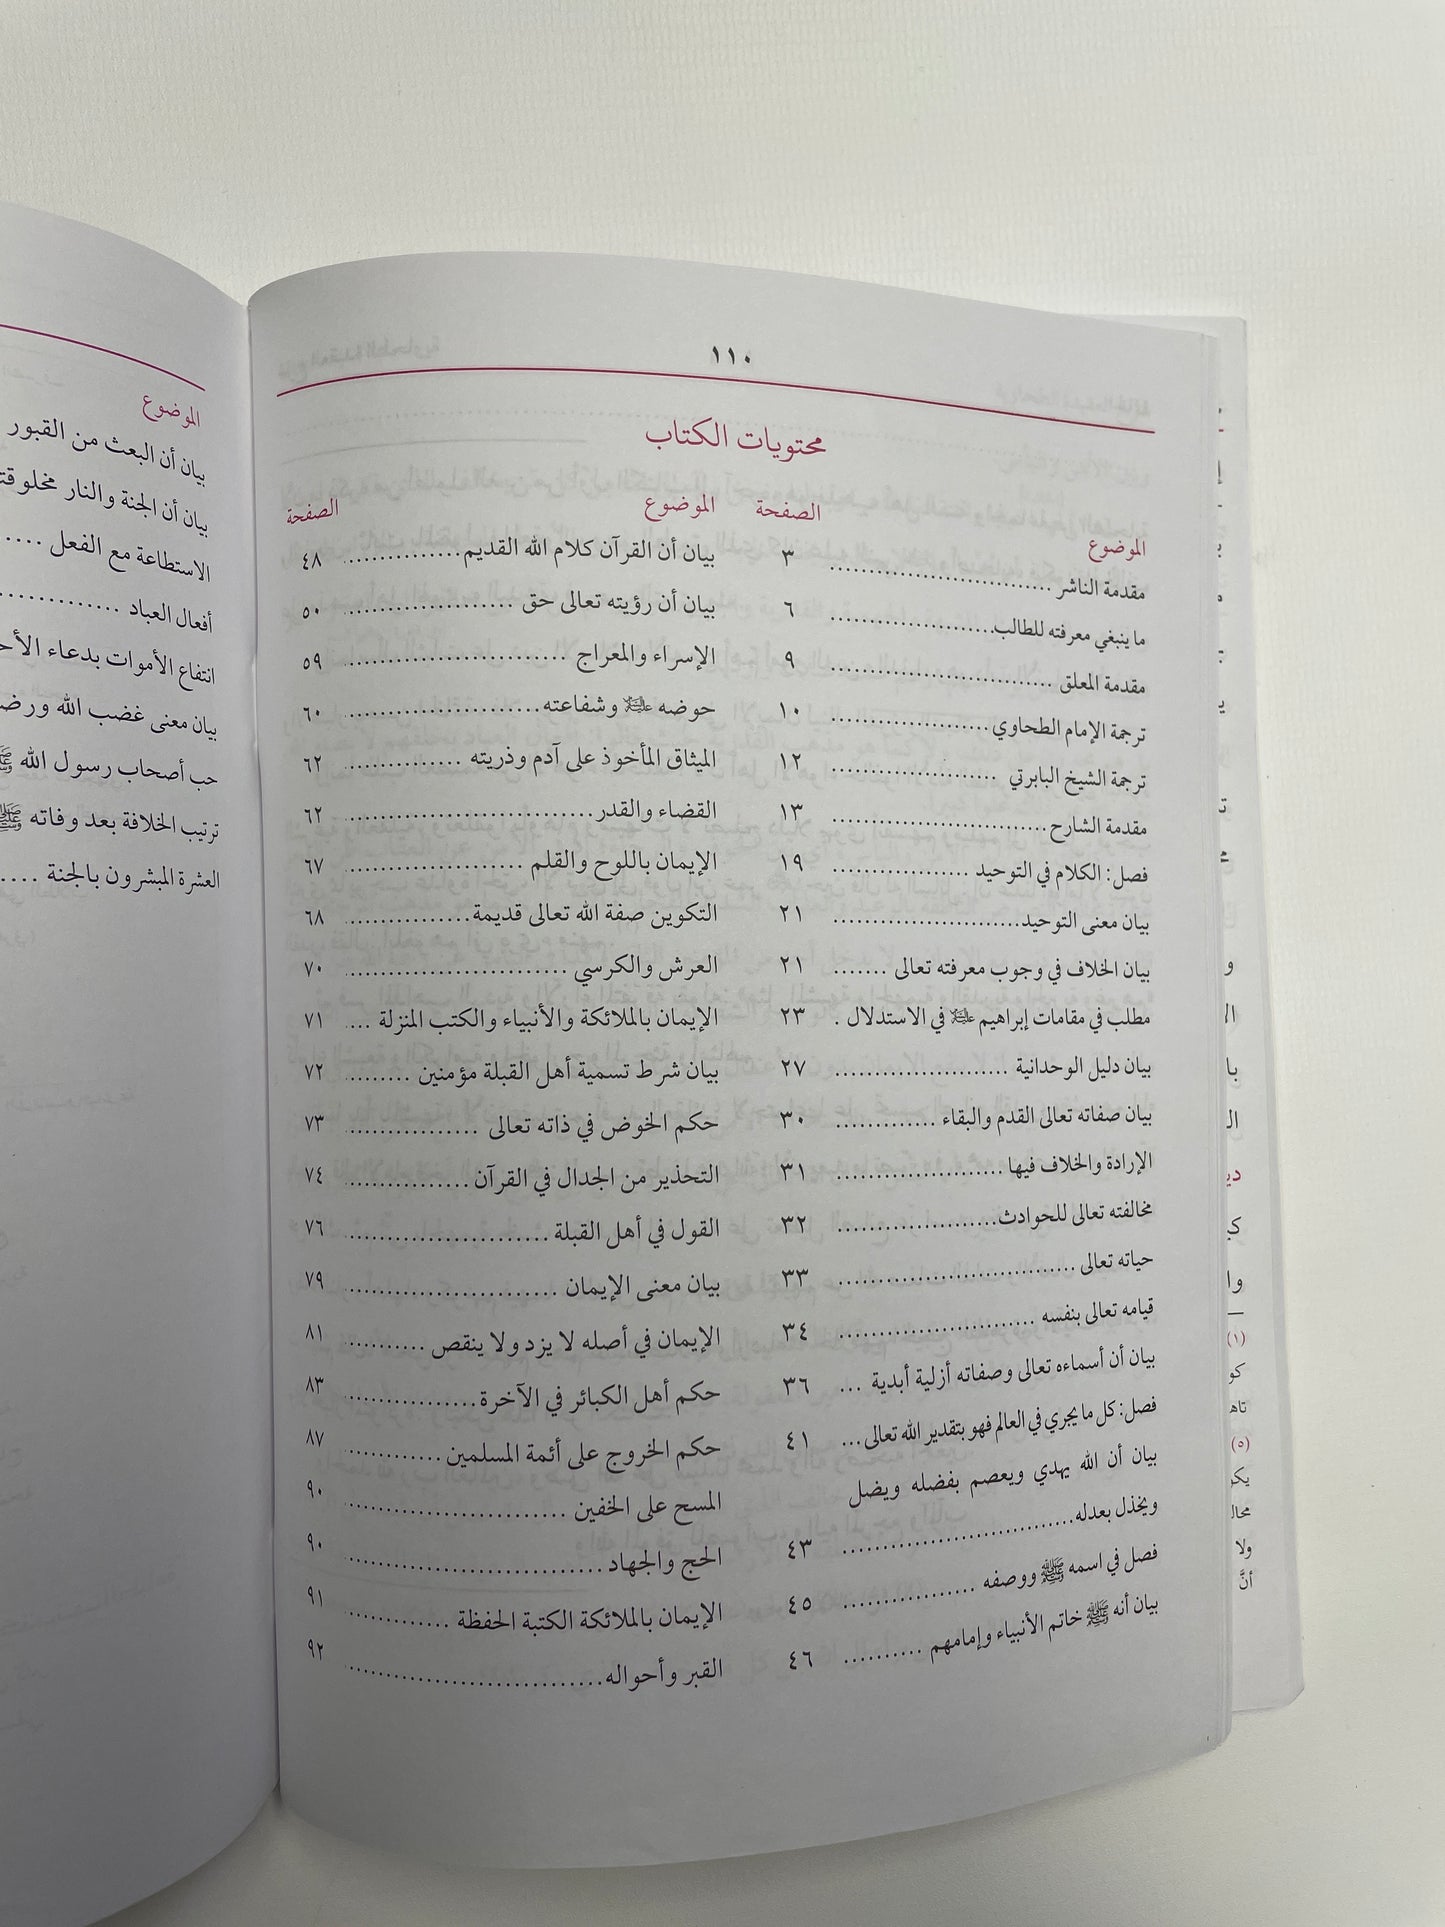 ١١٠
محتويات الكتاب
الموضوع الصفحة
مقدمة الناشر ٣
ما ينبغي معرفته للطالب ٦
مقدمة المعلق ٩
ترجمة الإمام الطحاوي ١٠
ترجمة الشيخ البابرتي ١٢
مقدمة الشارح ١٣
فصل: الكلام في التوحيد ١٩
بيان معنى التوحيد ٢١
بيان الخلاف في وجوب معرفته تعالى ٢١
مطلب في مقامات إبراهيم عليه السلام في الاستدلال ٢٣
بيان دليل الوحدانية ٢٧
بيان صفاته تعالى القدم والبقاء ٣٠
الإرادة والخلاف فيها ٣١
مخالفته تعالى للحوادث ٣٢
حياته تعالى ٣٣
قيامه تعالى بنفسه ٣٤
بيان أن أسماءه تعالى وصفاته أزلية أبدية ٣٦
فصل: كل ما يجري في العالم فهو بتقدير الله تعالى ٤١
بيان أن الله يهدي ويعصم بفضله ويضل
ويخذل بعدله ٤٣
فصل في اسمه ﷺ ووصفه ٤٥
بيان أنه ﷺ خاتم الأنبياء وإمامهم ٤٦
الموضوع الصفحة
بيان أن القرآن كلام الله القديم ٤٨
بيان أن رؤيته تعالى حق ٥٠
الإسراء والمعراج ٥٩
حوضه ﷺ وشفاعته ٦٠
الميثاق المأخوذ على آدم وذريته ٦٢
القضاء والقدر ٦٢
الإيمان باللوح والقلم ٦٧
التكوين صفة الله تعالى قديمة ٦٨
العرش والكرسي ٧٠
الإيمان بالملائكة والأنبياء والكتب المنزلة ٧١
بيان شرط تسمية أهل القبلة مؤمنين ٧٢
حكم الخوض في ذاته تعالى ٧٣
التحذير من الجدال في القرآن ٧٤
القول في أهل القبلة ٧٦
بيان معنى الإيمان ٧٩
الإيمان في أصله لا يزد ولا ينقص ٨١
حكم أهل الكبائر في الآخرة ٨٣
حكم الخروج على أئمة المسلمين ٨٧
المسح على الخفين ٩٠
الحج والجهاد ٩٠
الإيمان بالملائكة الكتبة الحفظة ٩١
القبر وأحواله ٩٢
الموضوع
بيان أن البعث من القبور
بيان أن الجنة والنار
الاستطاعة مع الفعل
أفعال العباد
انتفاع الأموات بدعاء
بيان معنى غضب الله
حب أصحاب رسول الله ﷺ
ترتيب الخلافة بعد وفاته ﷺ
العشرة المبشرون بالجنة